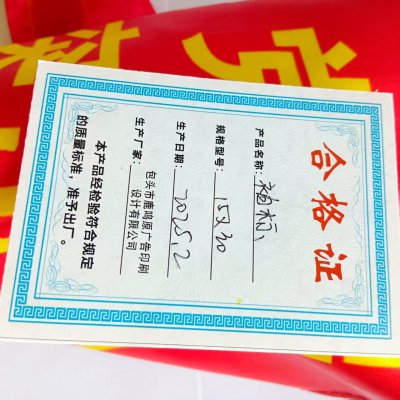 合格证
产品名称：袖标
规格型号：15×30
生产日期：2025.2
生产厂家：包头市鹿鸣原广告印刷
设计有限公司
本产品经检验符合规定
的质量标准，准予出厂。